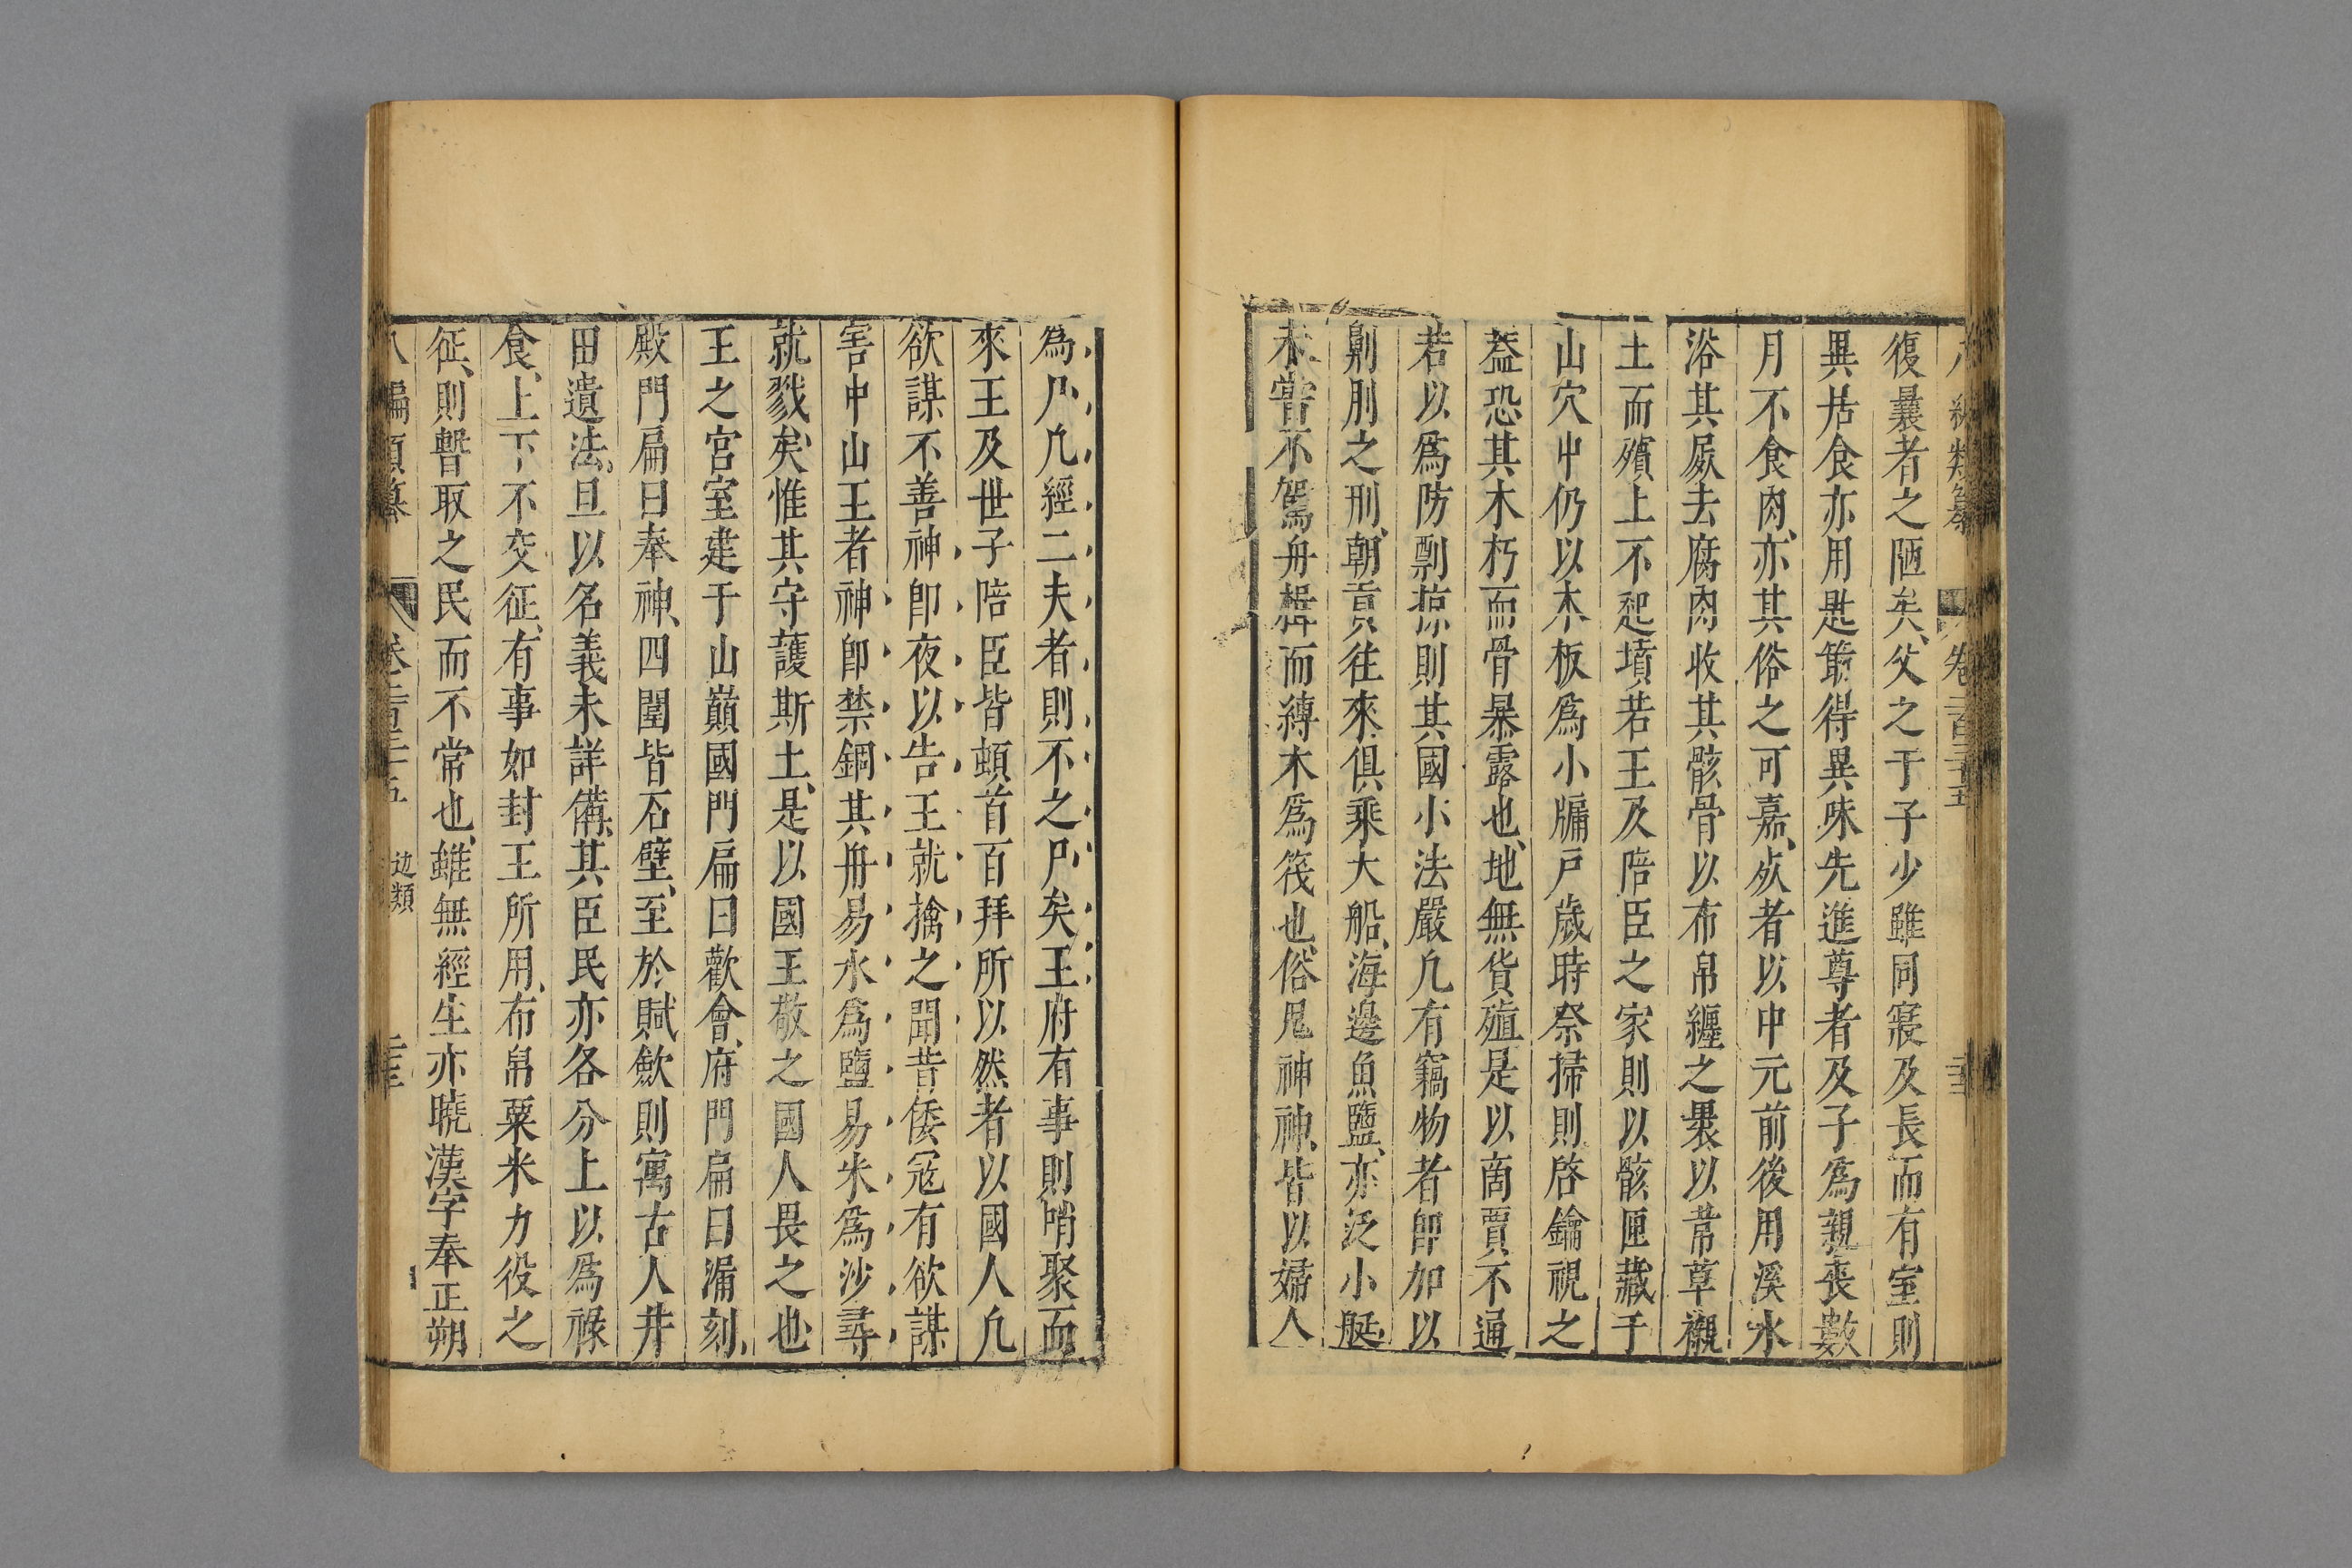 八編類纂 卷二百三十五 二十三
復曩者之陋矣父之于子少雖同寢及長而有室則
異居食亦用匙筯得異味先進尊者及子爲親喪數
月不食肉亦其俗之可嘉死者以中元前後用溪水
浴其屍去腐肉收其骸骨以布帛纏之褁以常草襯
土而殯上不起墳若王及陪臣之家則以骸匣藏于
山穴中仍以木板爲小牖戶歲時祭掃則啓鑰視之
葢恐其木朽而骨暴露也地無貨殖是以商賈不通
若以爲防剽掠則其國小法嚴凡有竊物者卽加以
劓刖之刑朝貢往來俱乘大船海邊魚鹽亦泛小艇
未嘗不駕舟楫而縛木爲筏也俗鬼神神皆以婦人
爲尸凡經二夫者則不之尸矣王府有事則哨聚而
來王及世子陪臣皆頓首百拜所以然者以國人凡
欲謀不善神卽夜以告王就擒之聞昔倭寇有欲謀
害中山王者神卽禁錮其舟易水爲鹽易米爲沙尋
就戮矣惟其守護斯土是以國王敬之國人畏之也
王之宮室建于山巔國門扁曰歡會府門扁曰漏刻
殿門扁曰奉神四圍皆石壁至於賦斂則寓古人井
田遺法且以名義未詳備其臣民亦各分上以爲祿
食上下不交征有事如封王所用布帛粟米力役之
征則暫取之民而不常也雖無經生亦曉漢字奉正朔
八編類纂 卷二百三十五 边類 二十三